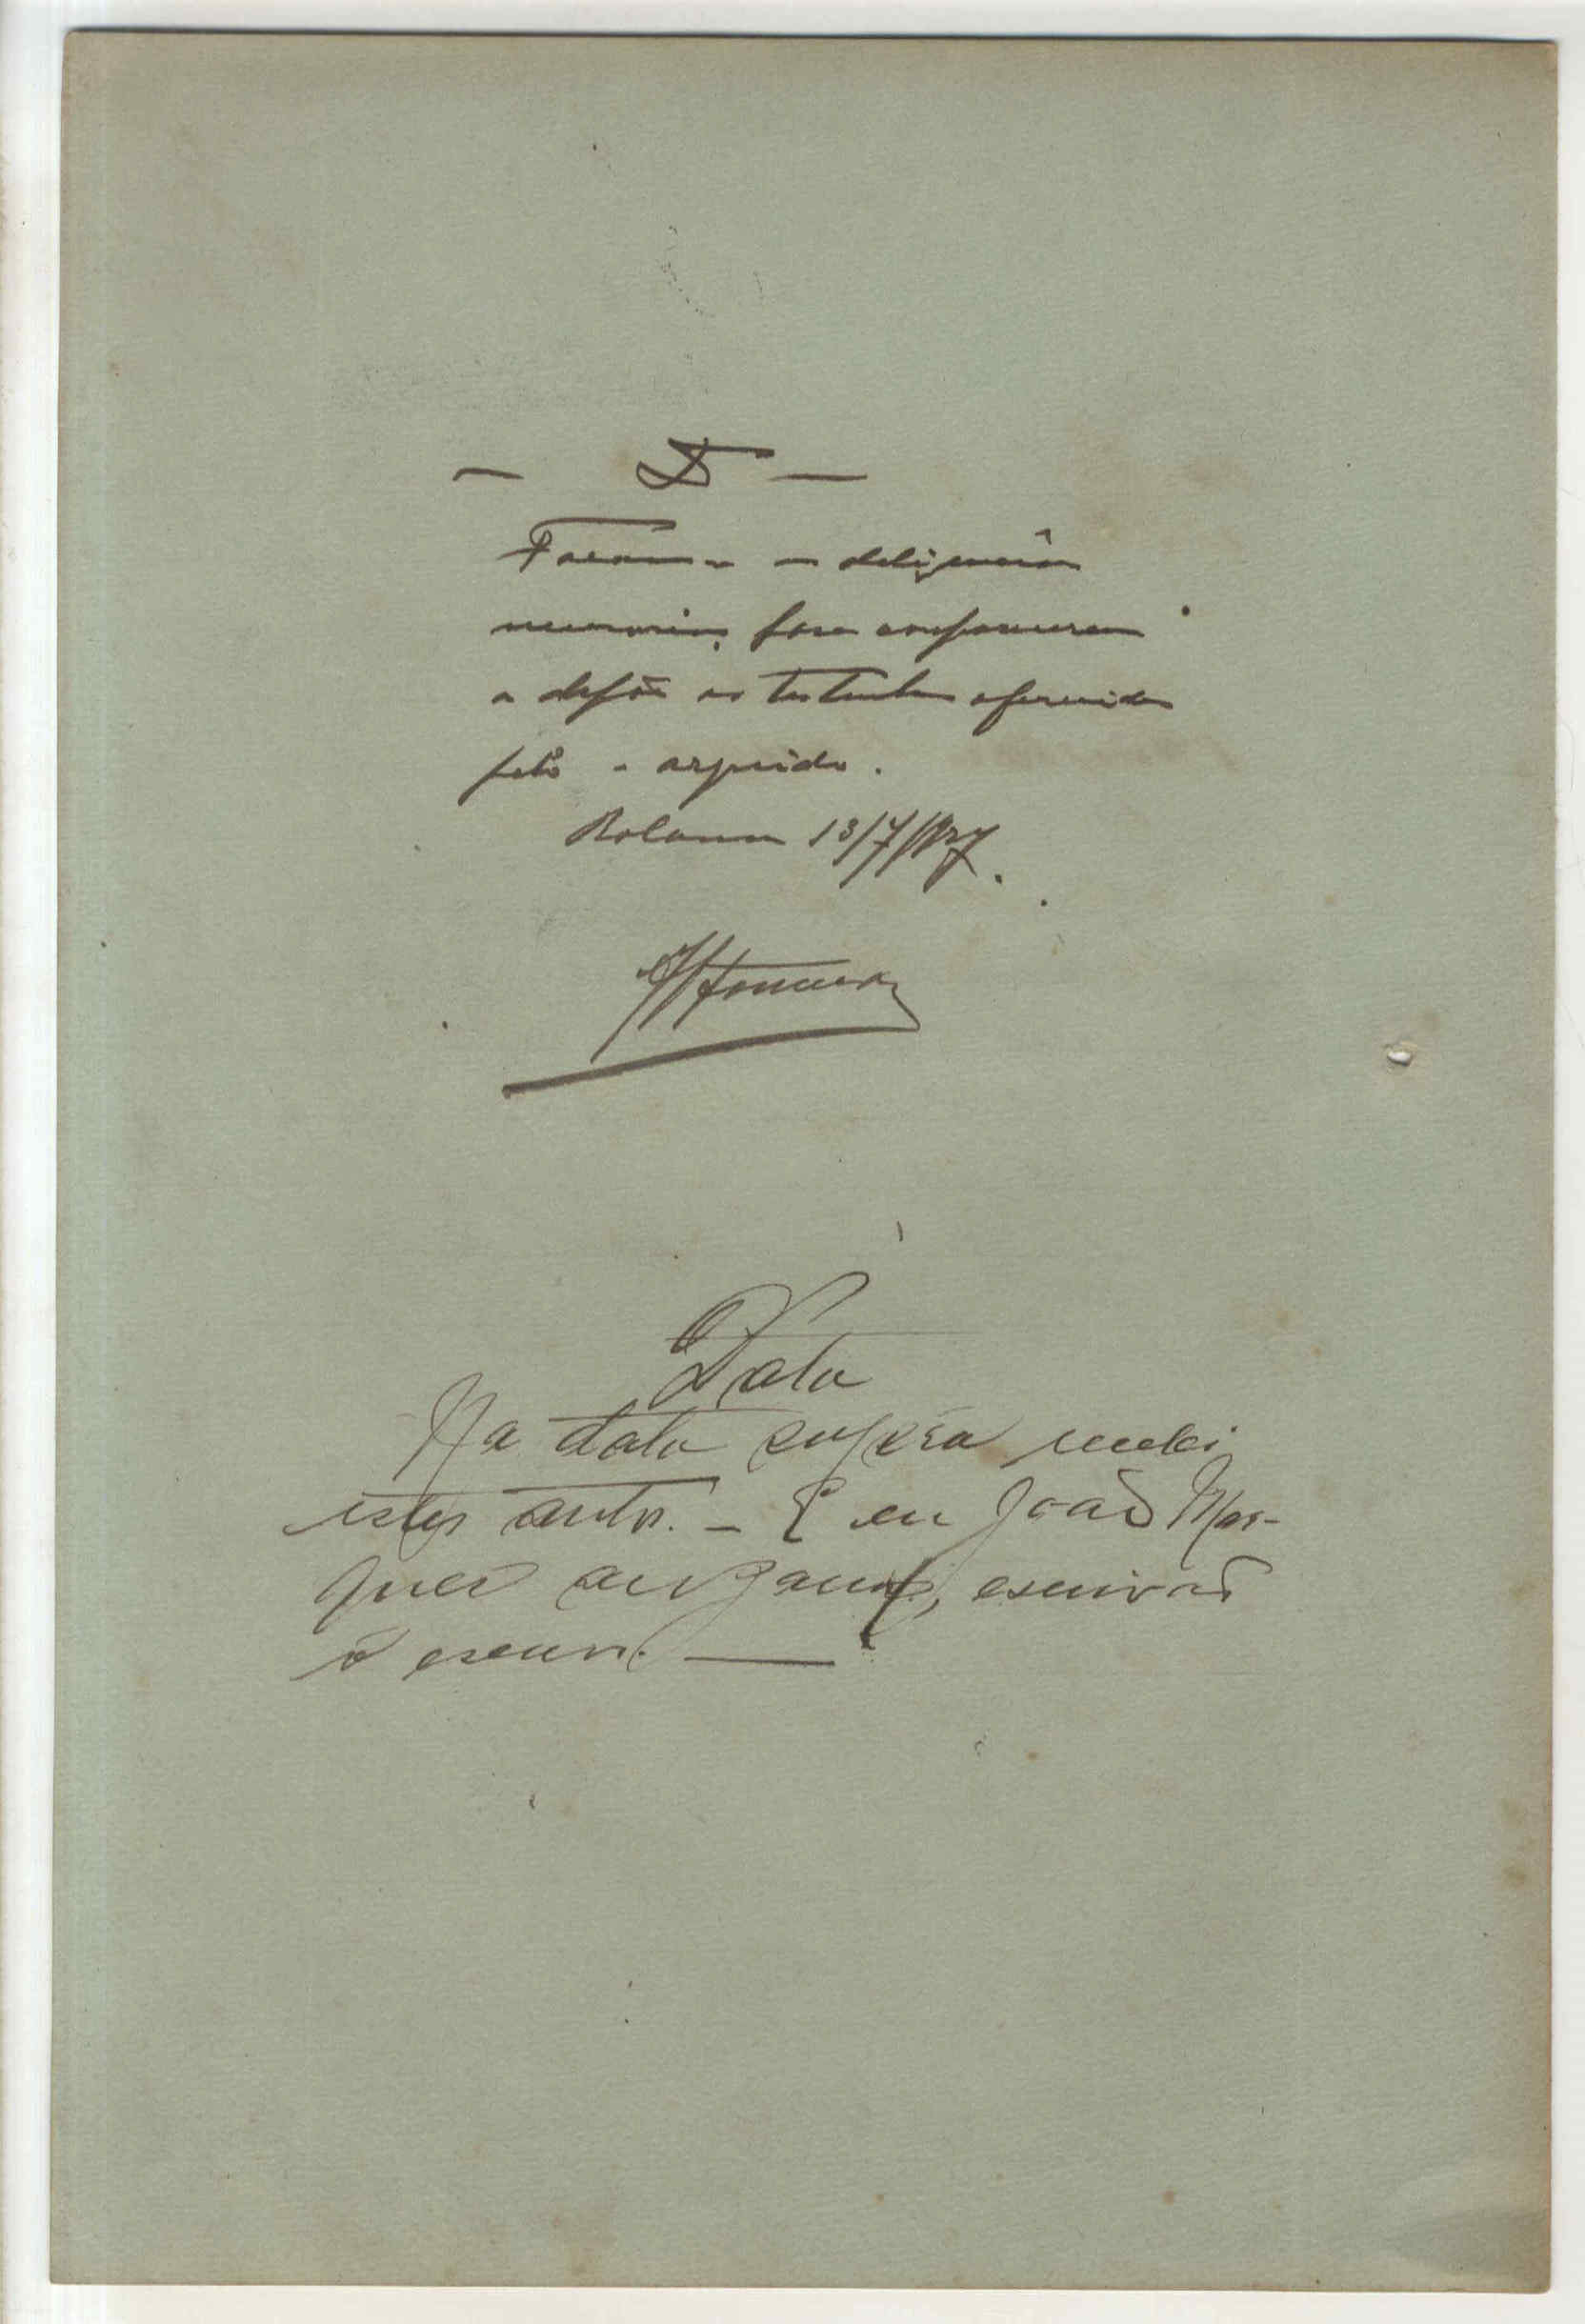 — D —
Façam-se as deligencias
necessarias para comparecerem
a depôr as testemunhas oferecidas
pelo arguido.
13/7/927.
Data
Na data supra recebi
estes autos. — E eu João Mar-
ques escrivão
o escrevi. —